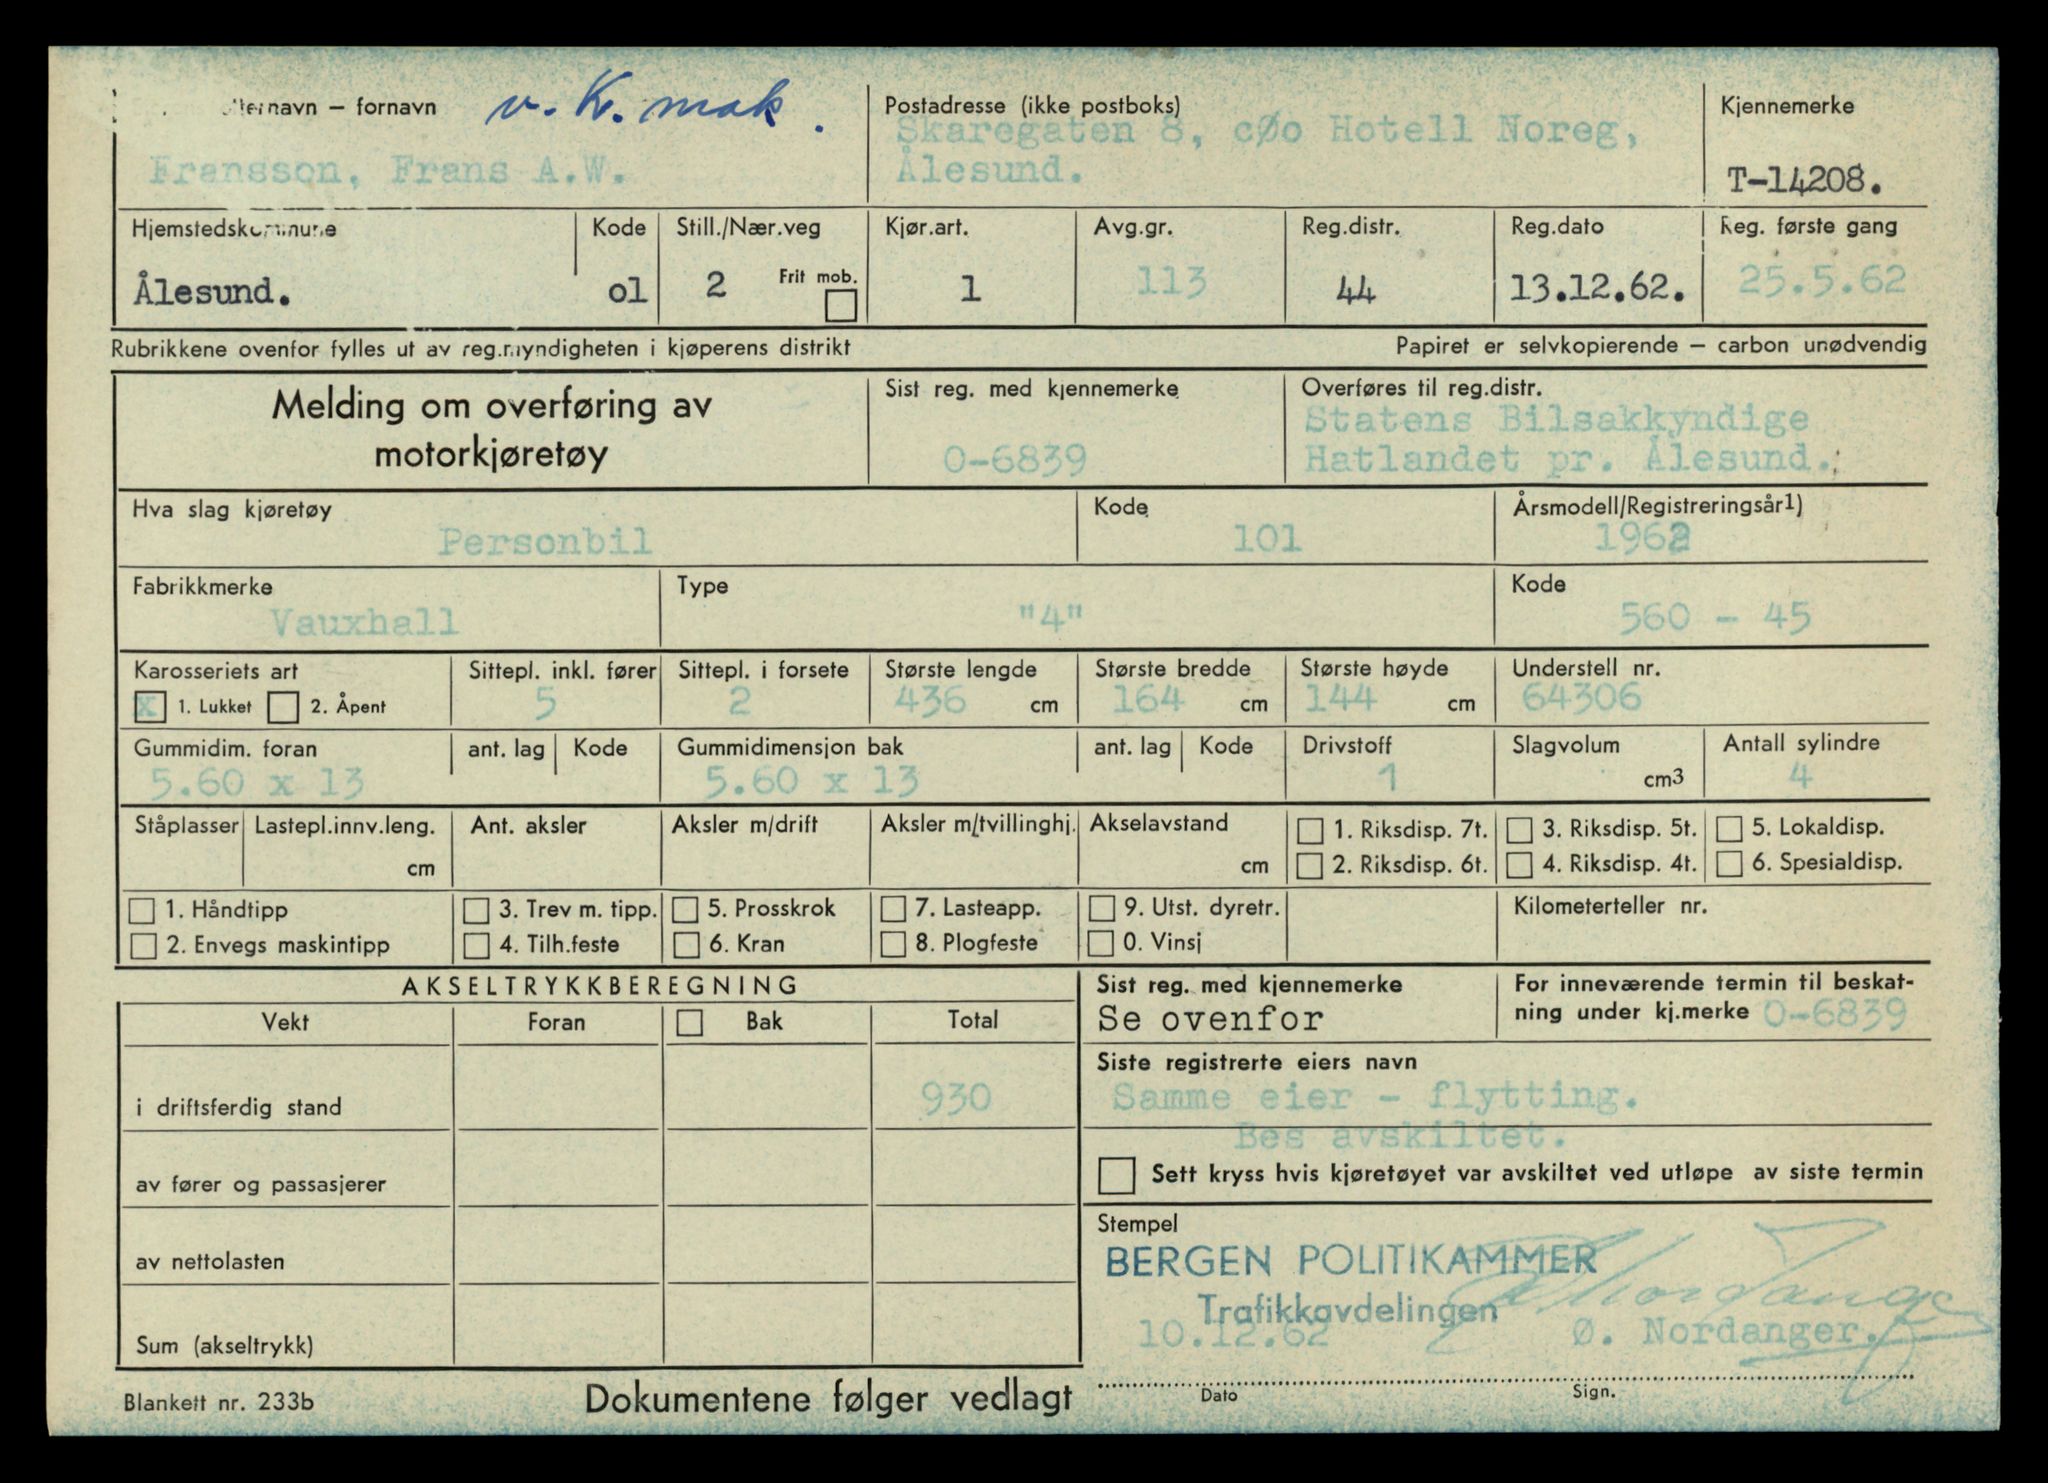 ternavn – fornavn v. K. mak. Postadresse (ikke postboks) Kjennemerke
Skaregaten 8, cØo Hotell Noreg,
Fransson, Frans A.W. Ålesund. T-14208.
Hjemstedskommune Kode Still./Nær.veg Kjør.art. Avg.gr. Reg.distr. Reg.dato Reg. første gang
Ålesund. 01 2 Frit mob. 1 113 44 13.12.62. 25.5.62
Rubrikkene ovenfor fylles ut av reg.myndigheten i kjøperens distrikt Papiret er selvkopierende – carbon unødvendig
Melding om overføring av Sist reg. med kjennemerke Overføres til reg.distr.
motorkjøretøy O-6839 Statens Bilsakkyndige
Hatlandet pr. Ålesund.
Hva slag kjøretøy Kode Årsmodell/Registreringsår1)
Personbil 101 1962
Fabrikkmerke Type Kode
Vauxhall "4" 560 - 45
Karosseriets art Sittepl. inkl. fører Sittepl. i forsete Største lengde Største bredde Største høyde Understell nr.
x 1. Lukket 2. Åpent 5 2 436 cm 164 cm 144 cm 64306
Gummidim. foran ant. lag Kode Gummidimensjon bak ant. lag Kode Drivstoff Slagvolum Antall sylindre
5.60 x 13 5.60 x 13 1 cm3 4
Ståplasser Lastepl.innv.leng. Ant. aksler Aksler m/drift Aksler m/tvillinghj. Akselavstand 1. Riksdisp. 7t. 3. Riksdisp. 5t. 5. Lokaldisp.
cm cm 2. Riksdisp. 6t. 4. Riksdisp. 4t. 6. Spesialdisp.
1. Håndtipp 3. Trev m. tipp. 5. Prosskrok 7. Lasteapp. 9. Utst. dyretr. Kilometerteller nr.
2. Envegs maskintipp 4. Tilh.feste 6. Kran 8. Plogfeste 0. Vinsj
AKSELTRYKKBEREGNING Sist reg. med kjennemerke For inneværende termin til beskat-
Vekt Foran Bak Total Se ovenfor ning under kj.merke O-6839
Siste registrerte eiers navn
i driftsferdig stand 930 Samme eier - flytting.
Bes avskiltet.
av fører og passasjerer Sett kryss hvis kjøretøyet var avskiltet ved utløpe av siste termin
Stempel
av nettolasten BERGEN POLITIKAMMER
Trafikkavdelingen
Sum (akseltrykk) 10.12.62 Ø. Nordanger.
Blankett nr. 233b Dokumentene følger vedlagt Dato Sign.